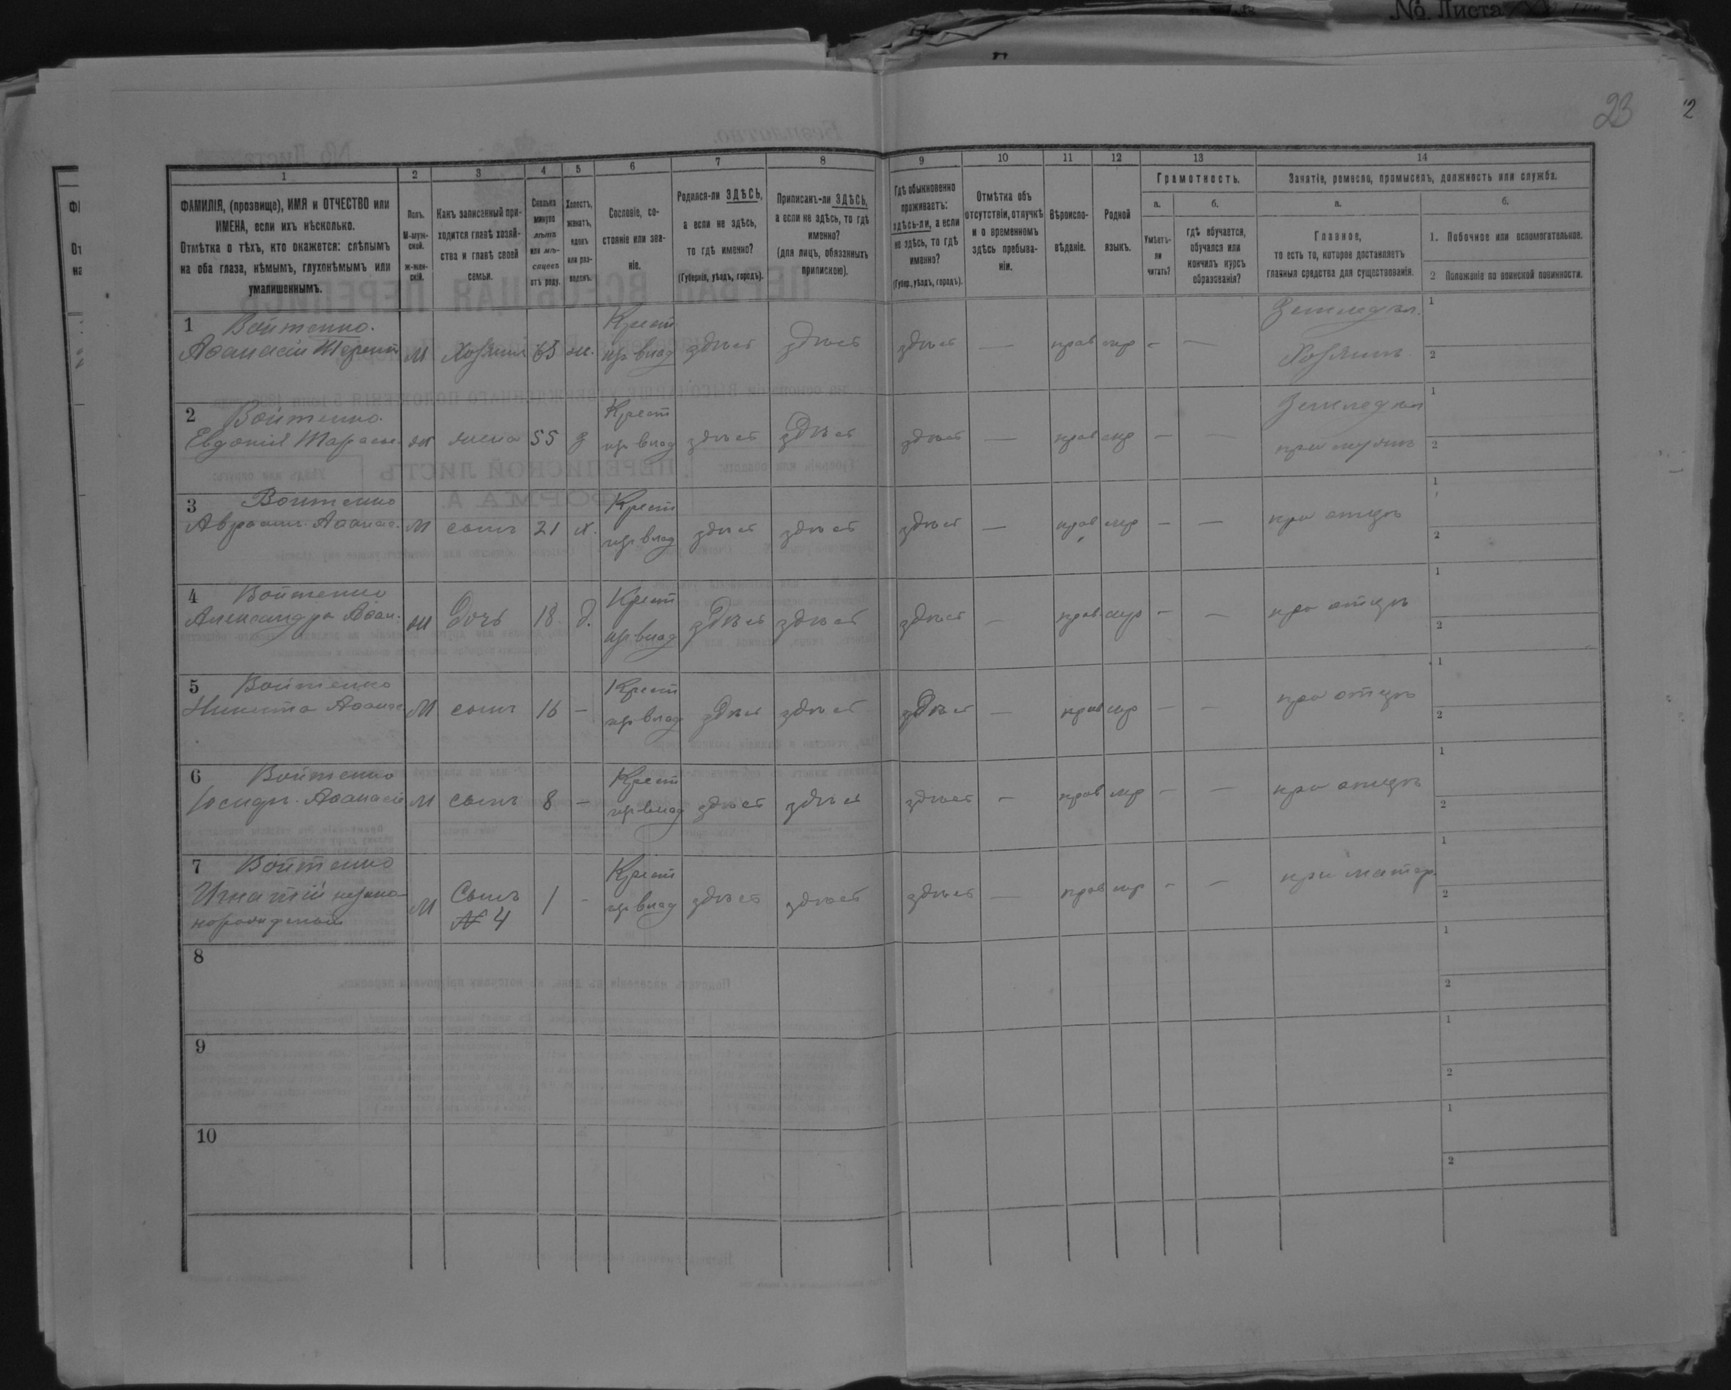 №. Листа
23
2
1
2
3
4
5
6
7
8
9
10
11
12
13
14
ФАМИЛІЯ, (прозвище), ИМЯ и ОТЧЕСТВО или
ИМЕНА, если ихъ нѣсколько.
Отмѣтка о тѣхъ, кто окажется: слѣпымъ
на оба глаза, нѣмымъ, глухонѣмымъ или
умалишеннымъ.
Полъ.
М-муж-
ской.
ж-жен-
скій.
Какъ записанный при-
ходится главѣ хозяй-
ства и главѣ своей
семьи.
Сколько
минуло
лѣтъ
или мѣ-
сяцевъ
отъ роду.
Холостъ,
женатъ,
вдовъ
или раз-
веденъ.
Сословіе, со-
стояніе или зва-
ніе.
Родился-ли ЗДѢСЬ,
а если не здѣсь,
то гдѣ именно?
(Губернія, уѣздъ, городъ).
Приписанъ-ли ЗДѢСЬ,
а если не здѣсь, то гдѣ
именно?
(для лицъ, обязанныхъ
припискою).
Гдѣ обыкновенно
проживаетъ:
здѣсь-ли, а если
не здѣсь, то гдѣ
именно?
(Губер., уѣздъ, городъ).
Отмѣтка объ
отсутствіи, отлучкѣ
и о временномъ
здѣсь пребыва-
ніи.
Вѣроиспо-
вѣданіе.
Родной
языкъ.
Грамотность.
а.
б.
Умѣетъ-
ли
читать?
гдѣ обучается,
обучался или
кончилъ курсъ
образованія?
Занятіе, ремесло, промыселъ, должность или служба.
а.
б.
Главное,
то есть то, которое доставляетъ
главныя средства для существованія.
1. Побочное или вспомогательное.
2 Положеніе по воинской повинности.
1 Войтенко.
Аѳанасій Терент
М Хозяинъ 65 ж. Крест
пр влад здѣсь здѣсь здѣсь — прав мр - —
Земледѣл.
Хозяинъ
1
2
2 Войтенко.
Евдокія Тарасье.
ж жена 55 з Крест
пр влад здѣсь здѣсь здѣсь — прав мр — —
Земледѣл
при мужѣ
1
2
3 Войтенко
Аврамъ Аѳанас.
М сынъ 21 х. Крест
пр влад здѣсь здѣсь здѣсь — прав мр — —
при отцѣ
1
2
4 Войтенко
Александра Аѳан.
ж Дочь 18 д. Крест
пр влад здѣсь здѣсь здѣсь — прав мр — —
при отцѣ
1
2
5 Войтенко
Никита Аѳанас
М сынъ 16 — Крест
пр влад здѣсь здѣсь здѣсь — прав мр — —
при отцѣ
1
2
6 Войтенко
Іосифъ Аѳанасіе
М сынъ 8 — Крест
пр влад здѣсь здѣсь здѣсь — прав мр — —
при отцѣ
1
2
7 Войтенко
Игнатій незако-
норожденый
М Сынъ
№ 4
1 - Крест
пр влад здѣсь здѣсь здѣсь — прав мр - —
при матер.
1
2
8
1
2
9
1
2
10
1
2